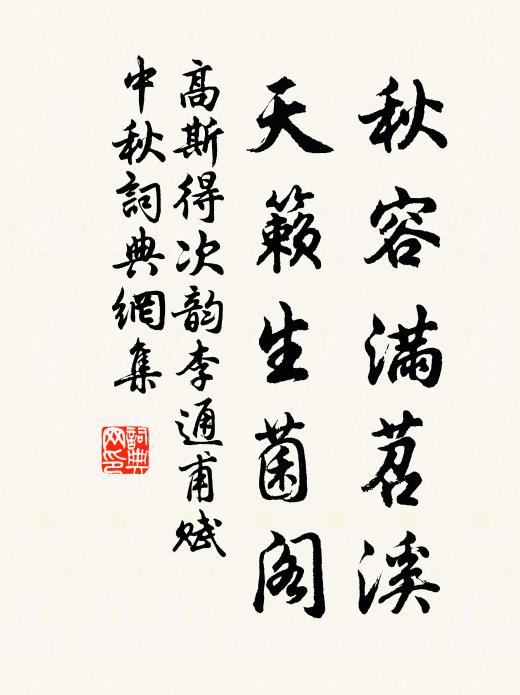 秋容满苕溪
天籁生菌阁
高斯得次韵李通甫赋
中秋詞典網集
詞典
网印